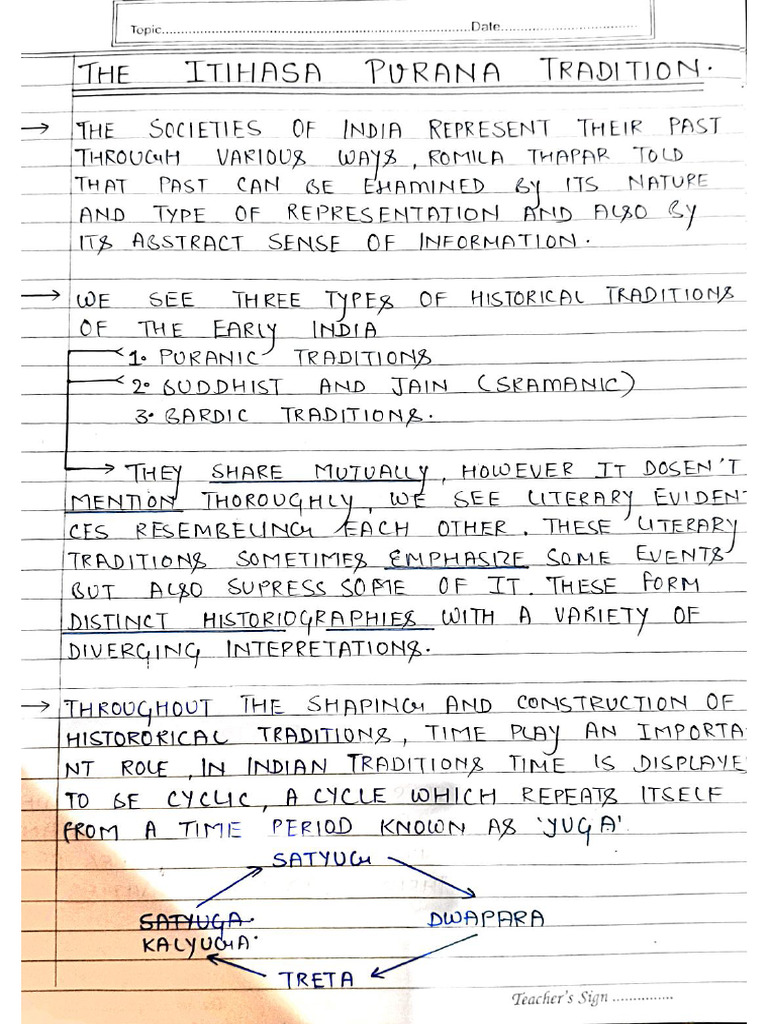 Topic.......................................................................................Date......................................
THE ITIHASA PURANA TRADITION.
→ THE SOCIETIES OF INDIA REPRESENT THEIR PAST
THROUGH VARIOUS WAYS, ROMILA THAPAR TOLD
THAT PAST CAN BE EXAMINED BY ITS NATURE
AND TYPE OF REPRESENTATION AND ALSO BY
ITS ABSTRACT SENSE OF INFORMATION.
→ WE SEE THREE TYPES OF HISTORICAL TRADITIONS
OF THE EARLY INDIA
1. PURANIC TRADITIONS
2. BUDDHIST AND JAIN (SRAMANIC)
3. BARDIC TRADITIONS.
→ THEY SHARE MUTUALLY, HOWEVER IT DOSEN'T
MENTION THOROUGHLY, WE SEE LITERARY EVIDEN
CES RESEMBELING EACH OTHER. THESE LITERARY
TRADITIONS SOMETIMES EMPHASIZE SOME EVENTS
BUT ALSO SUPRESS SOME OF IT. THESE FORM
DISTINCT HISTORIOGRAPHIES WITH A VARIETY OF
DIVERGING INTEPRETATIONS.
→ THROUGHOUT THE SHAPING AND CONSTRUCTION OF
HISTORORICAL TRADITIONS, TIME PLAY AN IMPORTA
NT ROLE, IN INDIAN TRADITIONS TIME IS DISPLAYE
TO BE CYCLIC, A CYCLE WHICH REPEATS ITSELF
FROM A TIME PERIOD KNOWN AS 'YUGA'.
SATYUG
SATYUGA. DWAPARA
KALYUGA.
TRETA
Teacher's Sign ...............